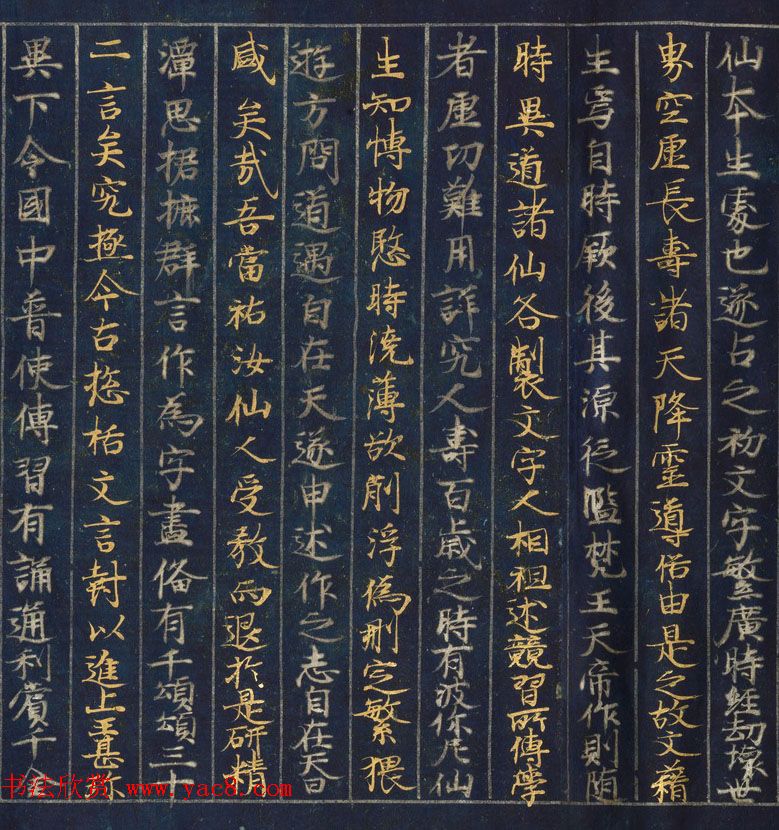 仙本生處也遂古之初文字繁廣時經劫壞世
界空虛長壽諸天降靈導俗由是之故文籍
生焉自時厥後其源泛濫梵王天帝作則隨
時異道諸仙各製文字人相祖述競習所傳學
者虛功難用詳究人壽百歲之時有波你尼仙
生知博物愍時澆薄欲削浮偽刪定繁猥
遊方問道遇自在天遂申述作之志自在天曰
盛矣哉吾當祐汝仙人受教而退於是研精
潭思捃摭群言作為字書俻有千頌頌三十
二言矣究極今古揔括文言封以進上王甚珎
異下令國中普使傳習有誦通利賞千金
书法欣赏 www.yac8.com